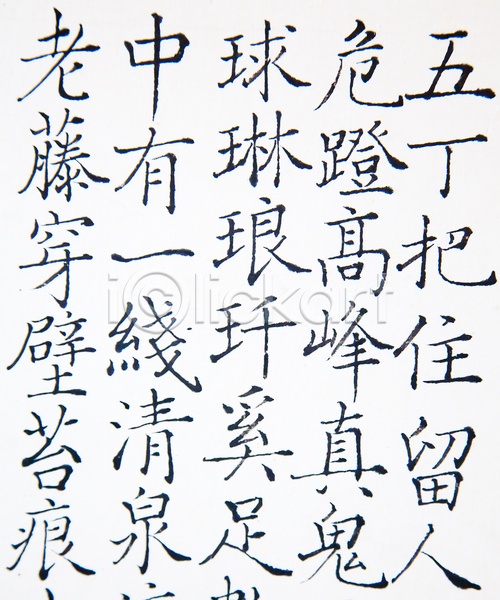 五丁把住留人
危蹬高峰真鬼
球琳琅玕奚足
中有一綫清泉
老藤穿壁苔痕
iclickart